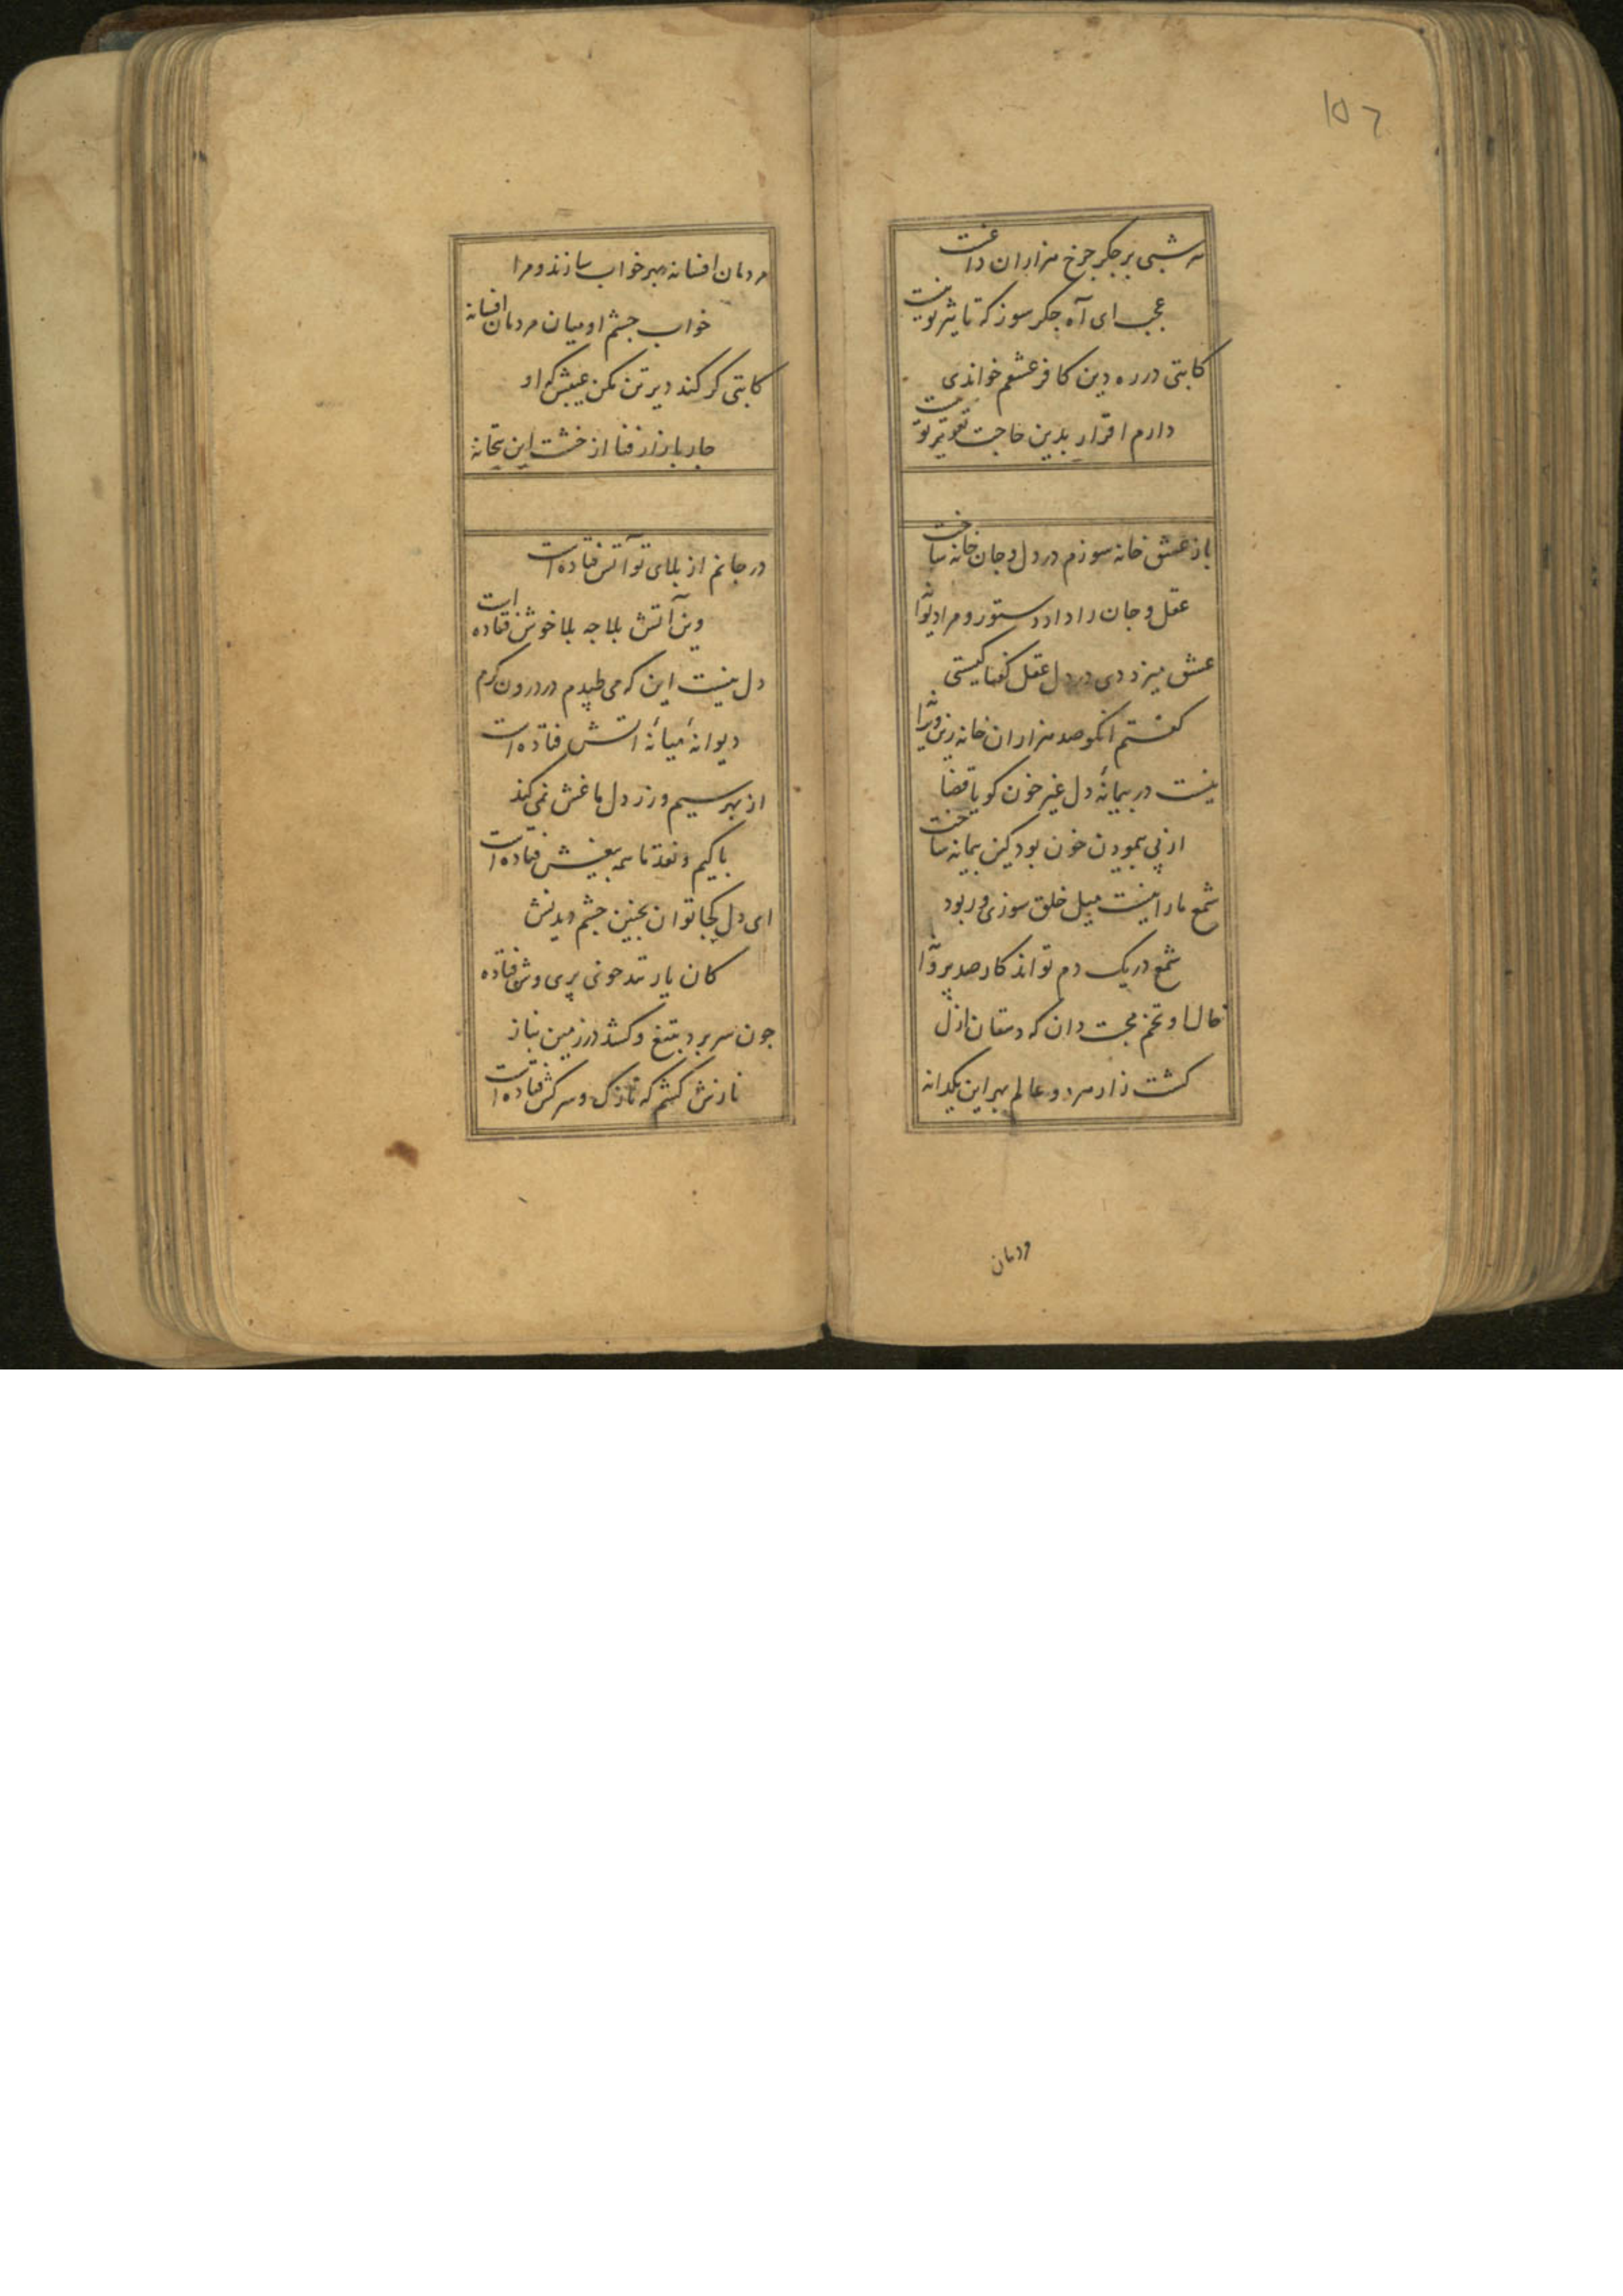 ۱۵۶
هر شبی بر جگر چرخ هزاران داغست
عجب ای آه جگر سوز که تاثیر تو نیست
کاتبی در ره دین کافر عشقم خواندی
دارم اقرار بدین حاجت تقریر تو نیست
باز عشق خانه سوزم در دل و جان خانه ساخت
عقل و جان را داد دستور و مرا دیوانه
عشق میزد دی در دل عقل گفتا کیستی
گفت آنکو صد هزاران خانه زین ویرانه
نیست در پیمانهٔ دل غیر خون گویا قضا
از پی پیمودن خون بود کین پیمانه ساخت
شمع ما را نیست میل خلق سوزی ور بود
شمع در یک دم تواند کار صد پروانه
خال او تخم محبت دان که دهقان ازل
کشت زار هر دو عالم بهر این یکدانه
مردمان
مردمان افسانه بهر خواب سازند و مرا
خواب چشم او میان مردمان افسانه
کاتبی گر کند دیر تن مکن عیبش که او
چار بازار فنا از خشت این بتخانه
در جانم از بلای تو آتش فتاده است
وین آتش بلا چه بلا خوش فتاده است
دل نیست این که می طپدم در درون گرم
دیوانهٔ میانهٔ آتش فتاده است
از بهر سیم و زر دل ما غش نمی کند
پاکیم و نقد ما همه بیغش فتاده است
ای دل کجا توان بچنین چشم دیدنش
کان یار تندخوی پری وش فتاده
چون سر برد بتیغ و کشد در زمین بناز
نازش کشم که نازک و سرکش فتاده است